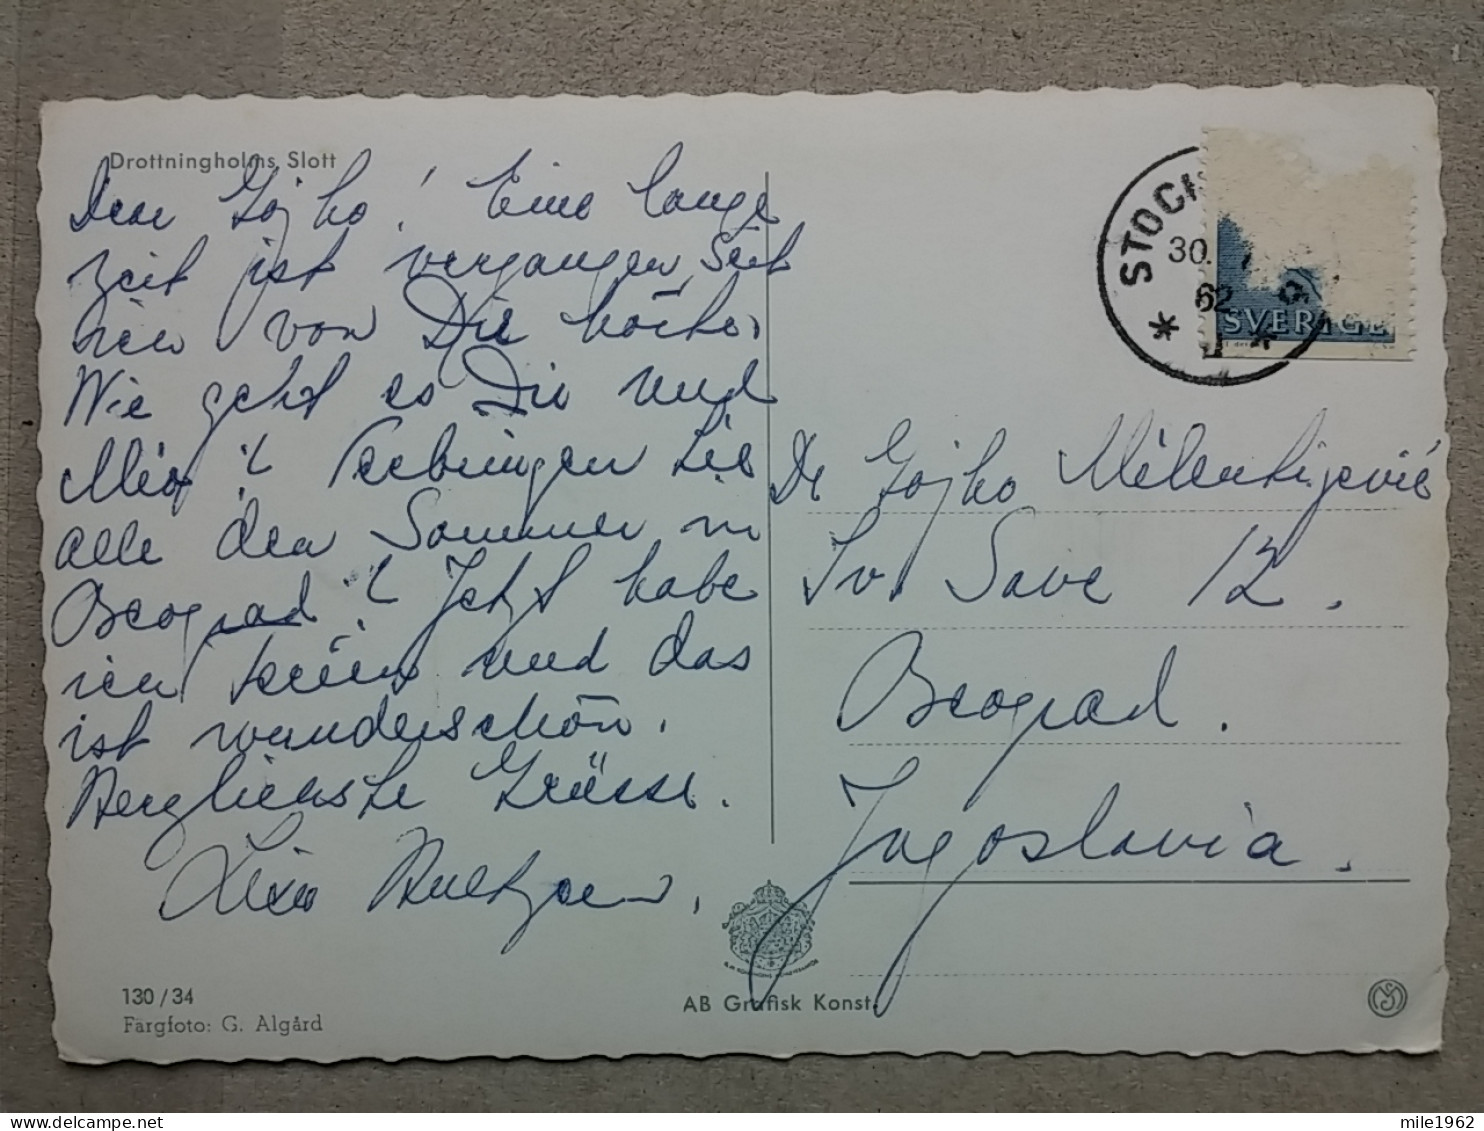 Drottningholms Slott
Dear Gojko! Eine lange
zeit ist vergangen Seit
ich von Dir hörte.
Wie geht es Dir und
Mia? Verbringen Sie
alle den Sommer in
Beograd? Jetzt habe
ich Ferien und das
ist wunderschön.
Herzlichste Grüsse.
130/34
Färgfoto: G. Algård
AB Grafisk Konst.
STOC
30.
62
SVERIGE
Dr Gojko Milentijević
Sv Save 12.
Beograd.
Jugoslavia.
mile1962